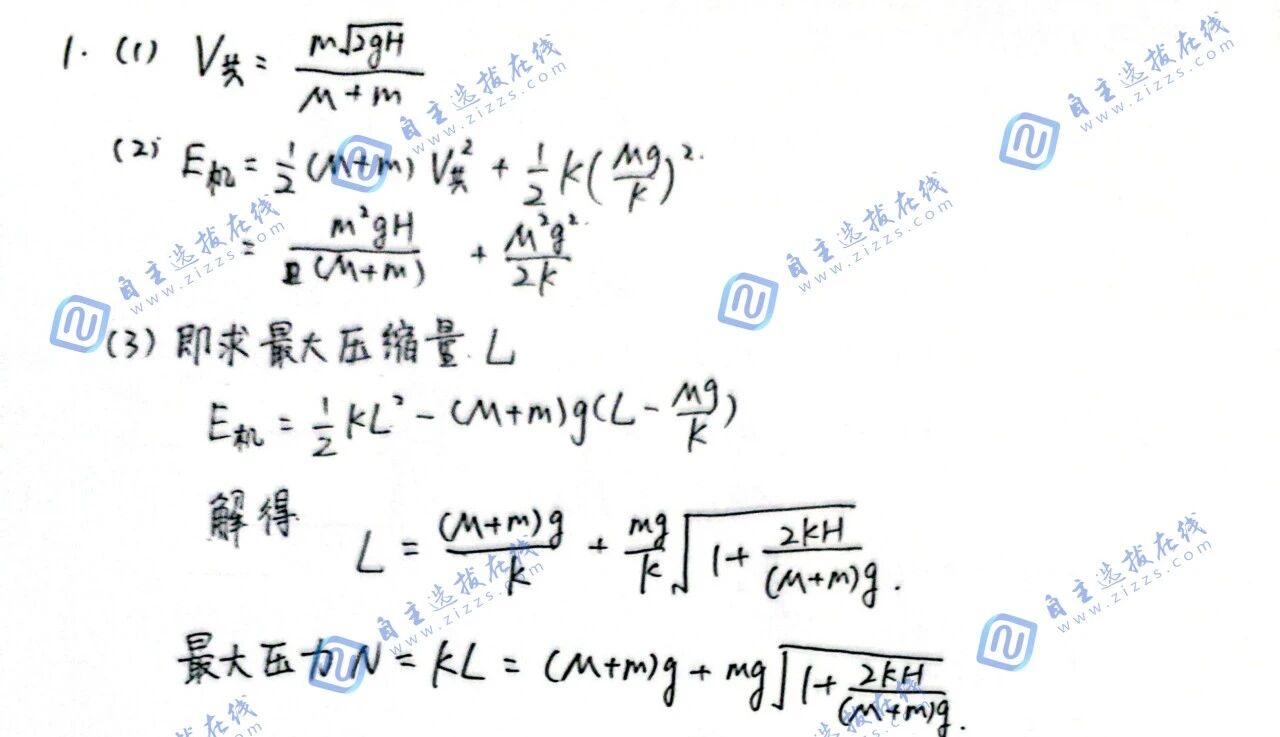 1. (1) V共 = m√2gH / M+m
(2) E机 = 1/2 (M+m) V共² + 1/2 K(Mg/K)².
= m²gH / (M+m) + M²g² / 2K
(3) 即求最大压缩量 L
E机 = 1/2 KL² - (M+m)g(L - Mg/K)
解得
L = (M+m)g / K + mg/K √1+ 2KH / (M+m)g .
最大压力N = KL = (M+m)g + mg√1+ 2KH / (M+m)g .
自主选拔在线
www.zizzs.com
自主选拔在线
www.zizzs.com
自主选拔在线
www.zizzs.com
自主选拔在线
www.zizzs.com
自主选拔在线
www.zizzs.com
自主选拔在线
www.zizzs.com